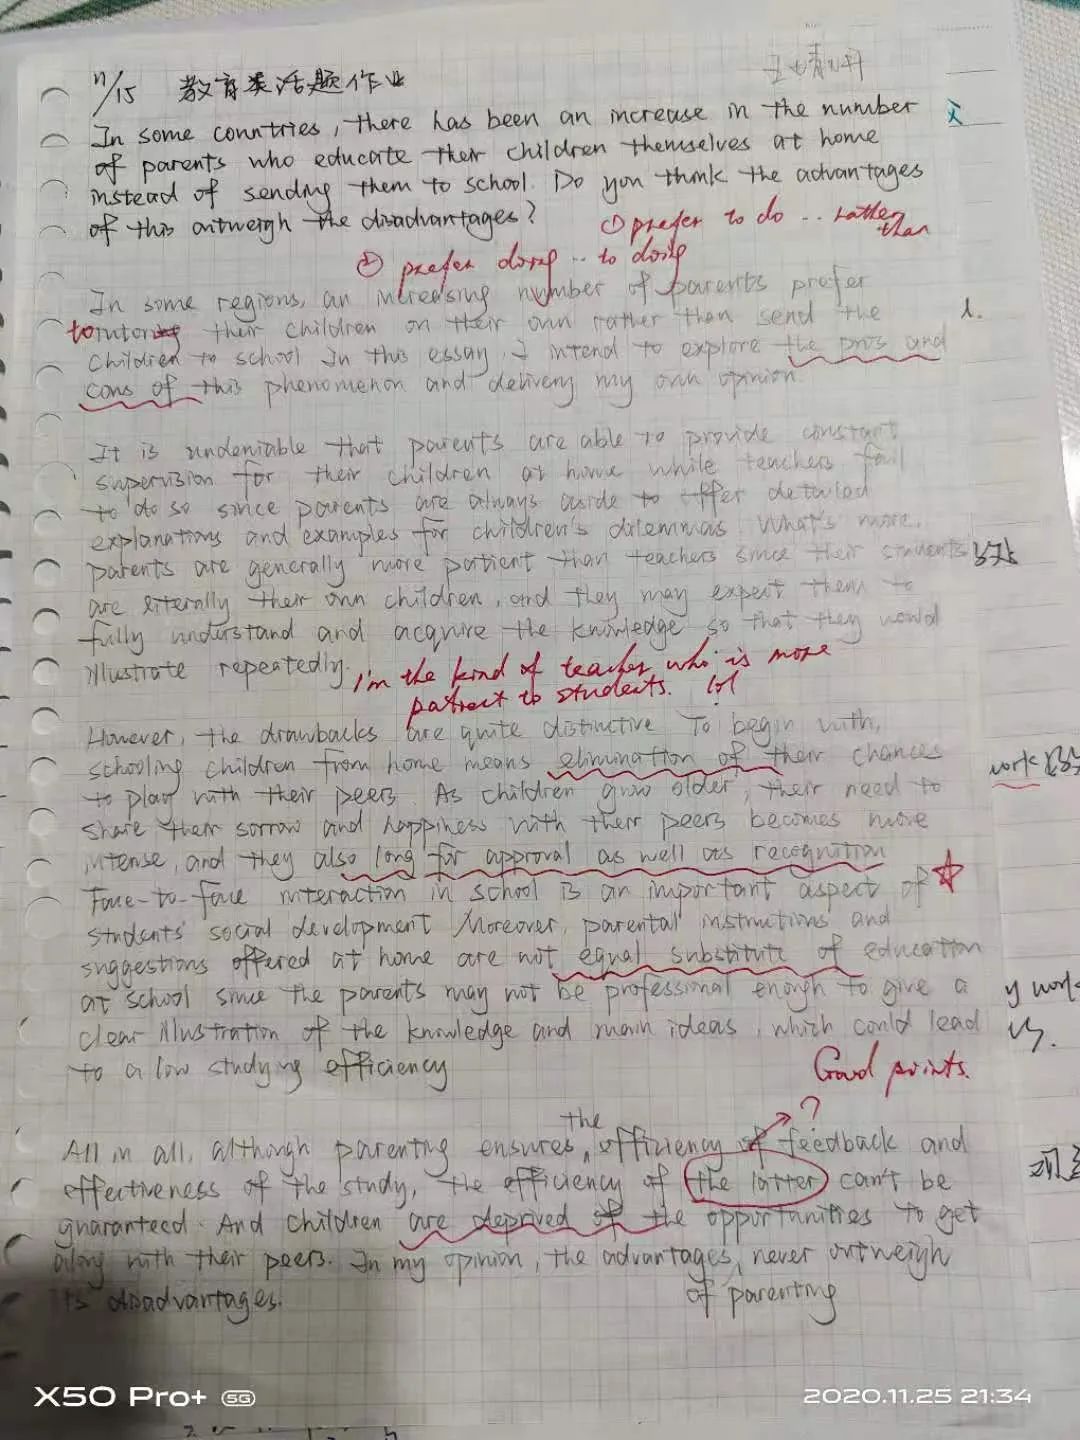 11/15 教育类话题作业
In some countries, there has been an increase in the number
of parents who educate their children themselves at home
instead of sending them to school. Do you think the advantages
of this outweigh the disadvantages?
① prefer to do .. rather than
② prefer doing .. to doing
In some regions, an increasing number of parents prefer
to tutoring their children on their own rather than send the
1.
children to school. In this essay, I intend to explore the pros and
cons of this phenomenon and delivery my own opinion.
It is undeniable that parents are able to provide constant
supervision for their children at home while teachers fail
to do so since parents are always aside to offer detailed
explanations and examples for children's dilemmas. What's more,
parents are generally more patient than teachers since their students
are literally their own children, and they may expect them to
fully understand and acquire the knowledge so that they would
illustrate repeatedly.
I'm the kind of teacher who is more
patient to students. lol
However, the drawbacks are quite distinctive. To begin with,
schooling children from home means elimination of their chances
work
to play with their peers. As children grow older, their need to
share their sorrow and happiness with their peers becomes more
intense, and they also long for approval as well as recognition.
Face-to-face interaction in school is an important aspect of
students' social development. Moreover, parental instructions and
suggestions offered at home are not equal substitute of education
at school since the parents may not be professional enough to give a
y work
clear illustration of the knowledge and main ideas, which could lead
to a low studying efficiency
Good points.
the
?
All in all, although parenting ensures efficiency of feedback and
effectiveness of the study, the efficiency of the latter can't be
guaranteed. And children are deprived of the opportunities to get
along with their peers. In my opinion, the advantages never outweigh
of parenting
its disadvantages.
X50 Pro+ 5G
2020.11.25 21:34